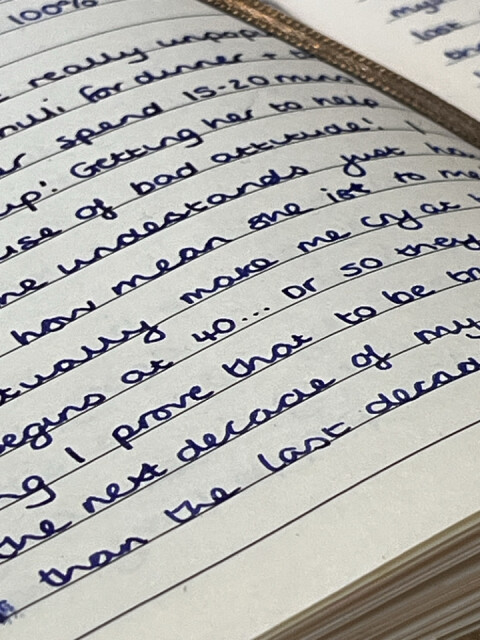 100%
really unpop
for dinner +
spend 15-20 mins
up! Getting her to help
use of bad attitude!
ne undestands just ha
how mean she is to me
tually make me cry at
egins at 40... or so they
ng I prove that to be tr
the next decade of my
than the last decad
my
last